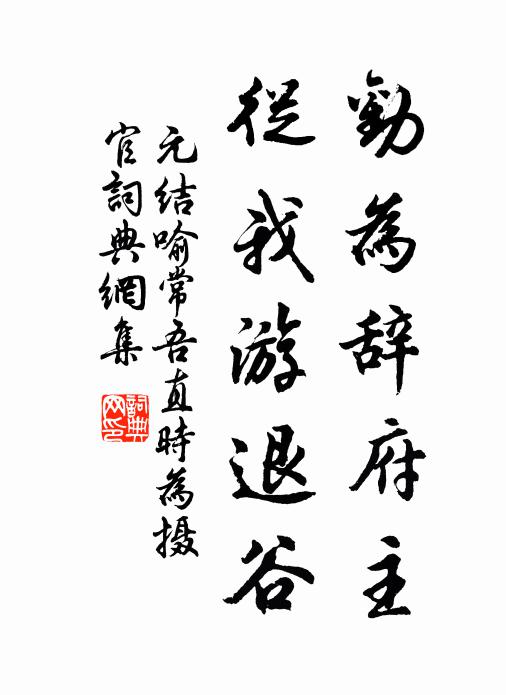 勸為辞府主
從我游退谷
元結喻常吾直時為摄
官詞典網集
詞典
网印